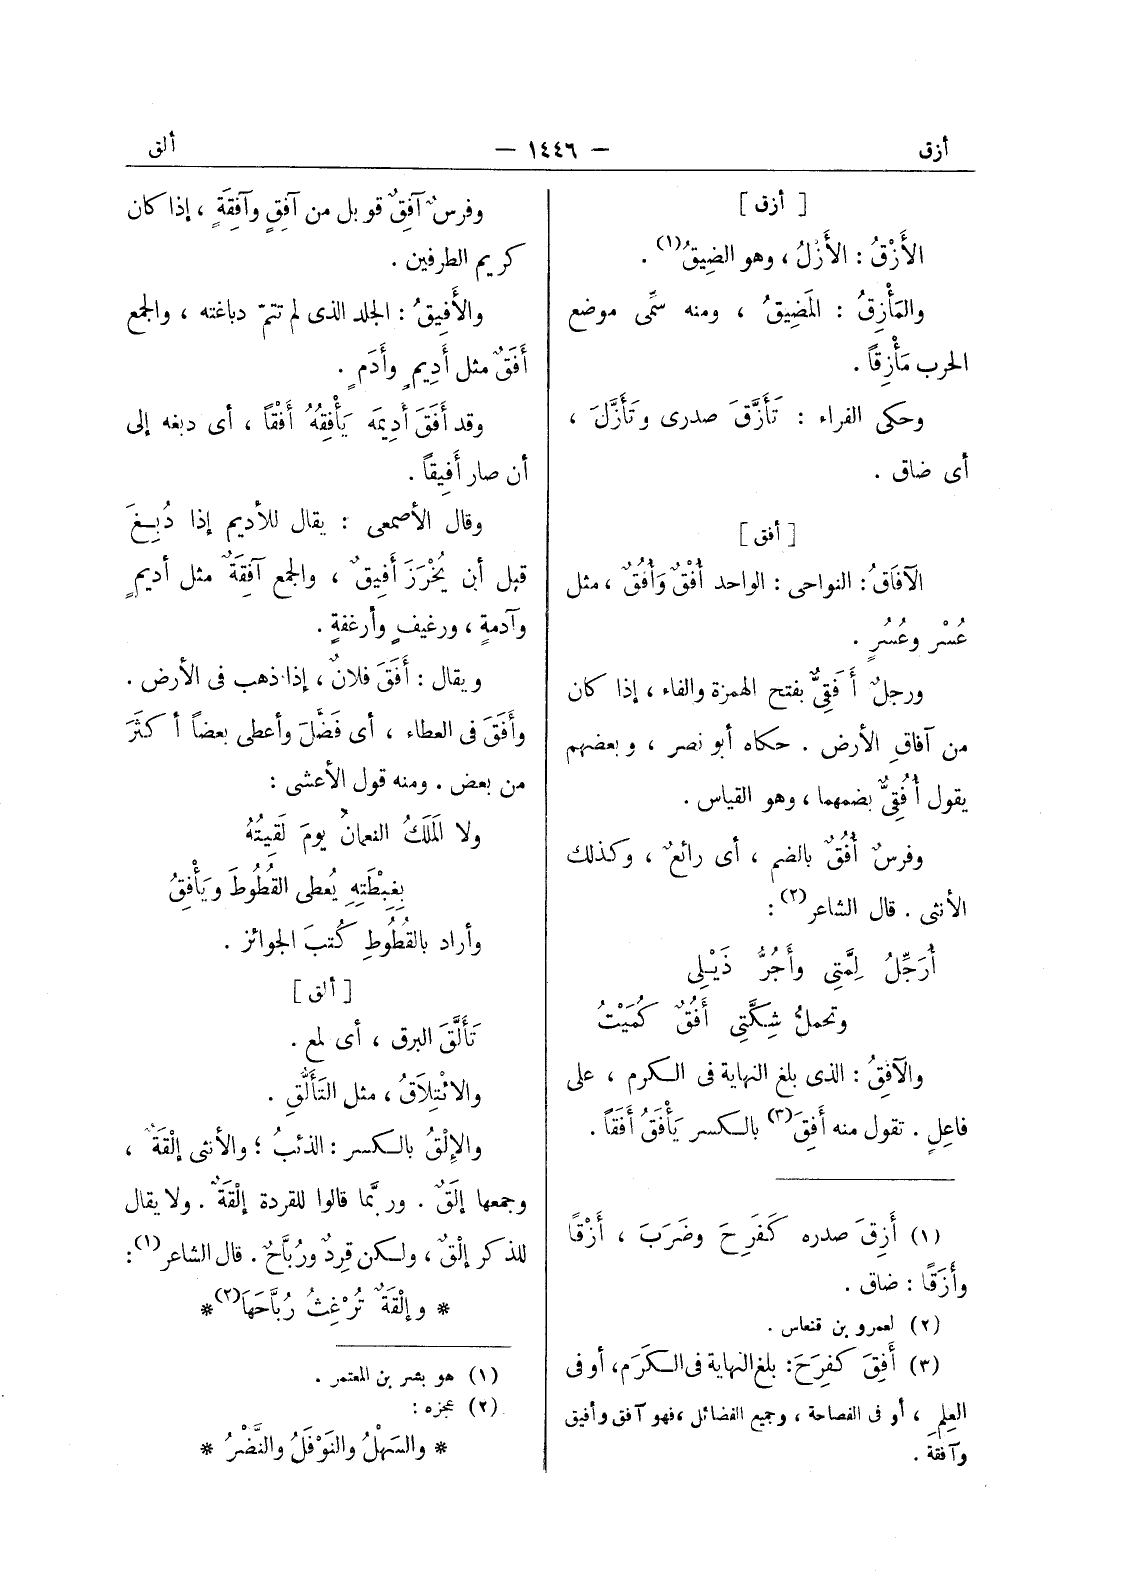 أزق
— ١٤٤٦ —
ألق
[ أزق ]
الأَزْقُ : الأَزْلُ ، وهو الضِيقُ(١) .
والمَأْزِقُ : المَضِيقُ ، ومنه سمِّى موضع
الحرب مَأْزِقاً .
وحكى الفراء : تَأَزَّقَ صدرى وتَأَزَّلَ ،
أى ضاق .
[ أفق ]
الآفَاقُ : النواحى : الواحد أُفْقٌ وَأُفُقٌ ، مثل
عُسْر وعُسُرٍ .
ورجلٌ أَفَقِىٌّ بفتح الهمزة والفاء ، إذا كان
من آفاقِ الأرض . حكاه أبو نصر ، وبعضهم
يقول أُفُقِىٌّ بضمهما ، وهو القياس .
وفرسٌ أُفُقٌ بالضم ، أى رائعٌ ، وكذلك
الأنثى . قال الشاعر(٢) :
أُرَجِّلُ لِمَّتِى وأَجُرُّ ذَيْلِى
وتحملُ شِكَّتِى أُفُقٌ كُمَيْتُ
والآفِقُ : الذى بلغ النهاية فى الكرم ، على
فاعِلٍ . تقول منه أَفِقَ(٣) بالكسر يَأْفَقُ أَفَقاً .
(١) أَزِقَ صدره كَفَرِحَ وضَرَبَ ، أَزْقًا
وأَزَقًا : ضاق .
(٢) لعمرو بن قنعاس .
(٣) أَفِقَ كفرِحَ: بلغ النهاية فى الكَرَم، أو فى
العِلمِ ، أو فى الفصاحة ، وجميع الفضائل ، فهو آفق وأفيق
وآفقة .
وفرسٌ آفِقٌ قوبل من آفِقٍ وآفِقَةٍ ، إذا كان
كريم الطرفين .
والأَفِيقُ : الجلد الذى لم تتمّ دباغته ، والجمع
أَفَقٌ مثل أَدِيمٍ وأَدَمٍ .
وقد أَفَقَ أَدِيمَه يَأْفِقُهُ أَفْقاً ، أى دبغه إلى
أن صار أَفِيقاً .
وقال الأصمعى : يقال للأديم إذا دُبِغَ
قبل أن يُخْرَزَ أَفِيقٌ ، والجمع آفِقَةٌ مثل أديمٍ
وآدمةٍ ، ورغيفٍ وأرغفةٍ .
ويقال : أَفَقَ فلانٌ ، إذا ذهب فى الأرض .
وأَفَقَ فى العطاء ، أى فَضَّلَ وأعطى بعضاً أكثَرَ
من بعض . ومنه قول الأعشى :
ولا المَلَكُ النعمانُ يومَ لَقِيتُهُ
بِغِبْطَتِهِ يُعطى القُطُوطَ ويَأْفِقُ
وأراد بالقُطُوطِ كُتبَ الجوائز .
[ ألق ]
تَأَلَّقَ البرق ، أى لمع .
والائْتِلَاقُ ، مثل التَأَلُّقِ .
والإِلْقُ بالكسر : الذئبُ ؛ والأنثى إلْقَةٌ ،
وجمعها إلَقٌ . وربَّما قالوا للقردة إلْقَةٌ . ولا يقال
للذكر إلْقٌ ، ولكن قِردٌ ورُبَّاحٌ . قال الشاعر(١) :
* وإلْقَةٌ تُرْغِثُ رُبَّاحَهَا(٢) *
(١) هو بشر بن المعتمر .
(٢) عجزه :
* والسَهْلُ والنَوْفَلُ والنَّضْرُ *